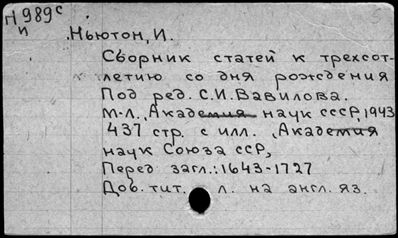 П 989с
и
Ньютон, И.
Сборник статей к трехсот-
летию со дня рождения
Под ред. С.И. Вавилова.
М-Л., Академия наук СССР, 1943
437 стр. с илл. Академия
наук Союза ССР,
Перед загл.: 1643-1727
Доб. тит. л. на англ. яз.